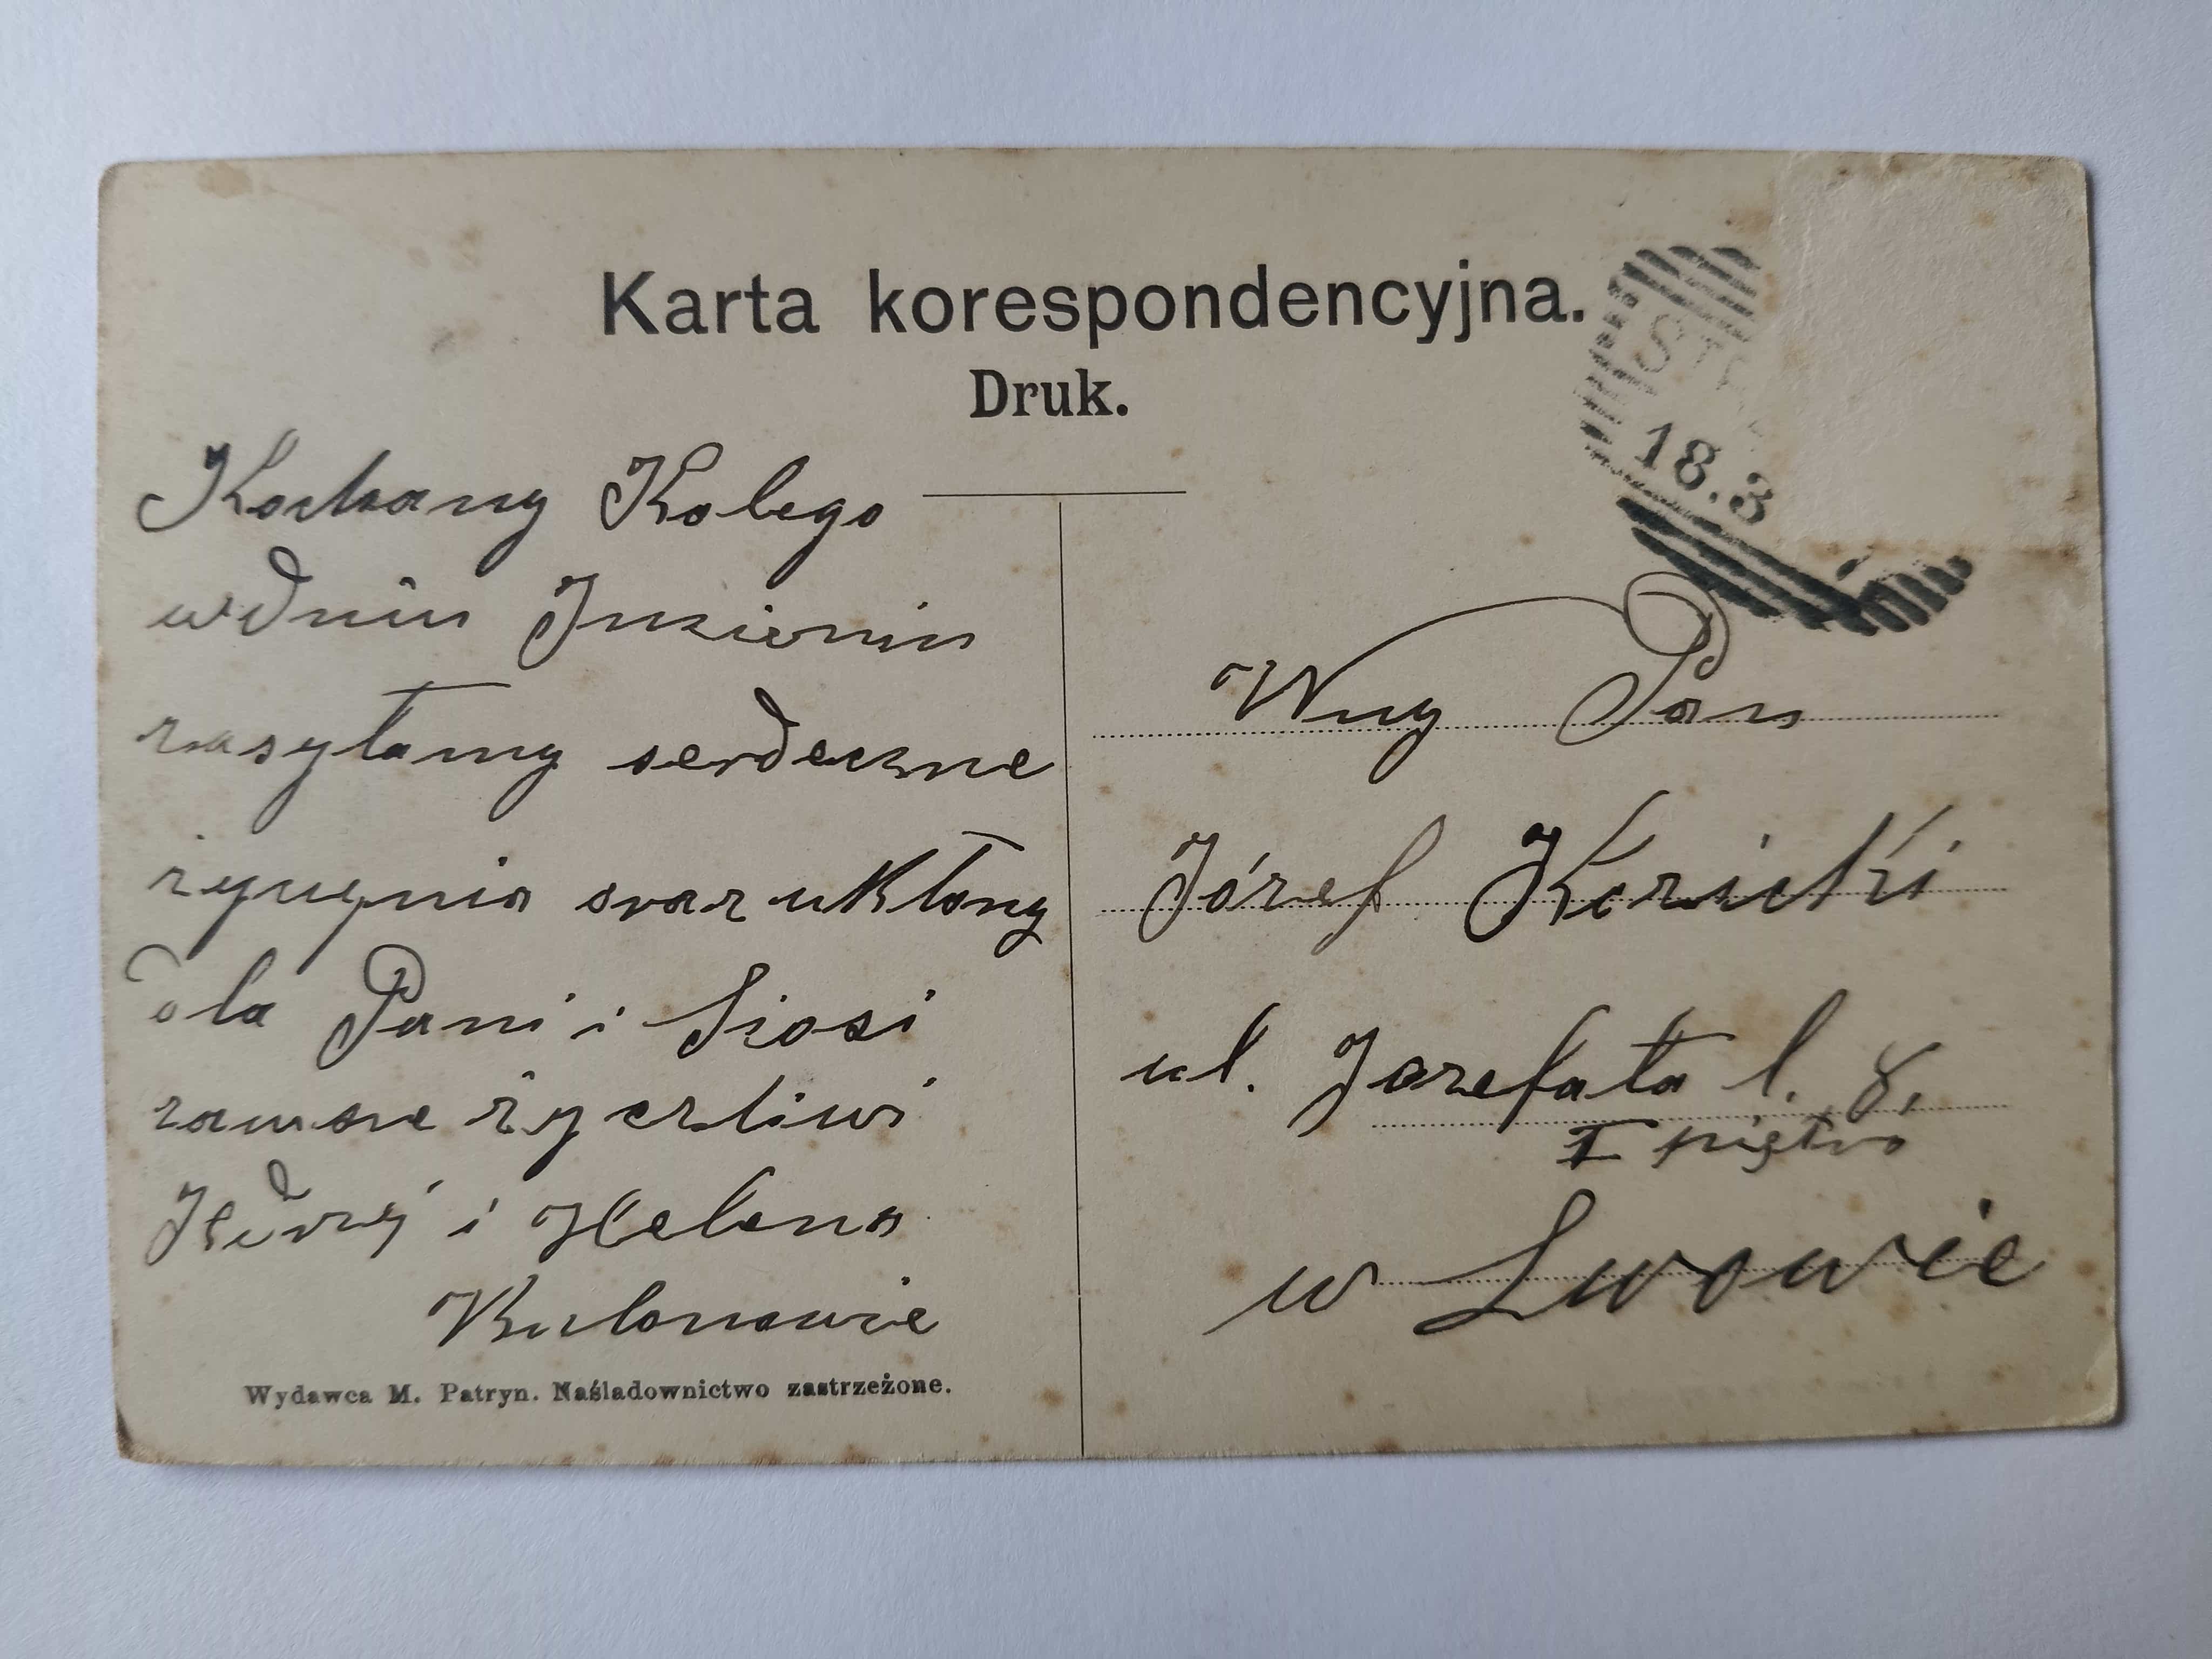 Karta korespondencyjna.
Druk.
18.3
Kochany Kolego
w dniu Imienin
zasyłamy serdeczne
życzenia oraz ukłony
dla Pani i Ziosi
zawsze życzliwi
i Helena
Wny Pan
Józef Kozicki
ul. Jozefata l. 8,
I piętro
w Lwowie
Wydawca M. Patryn. Naśladownictwo zastrzeżone.